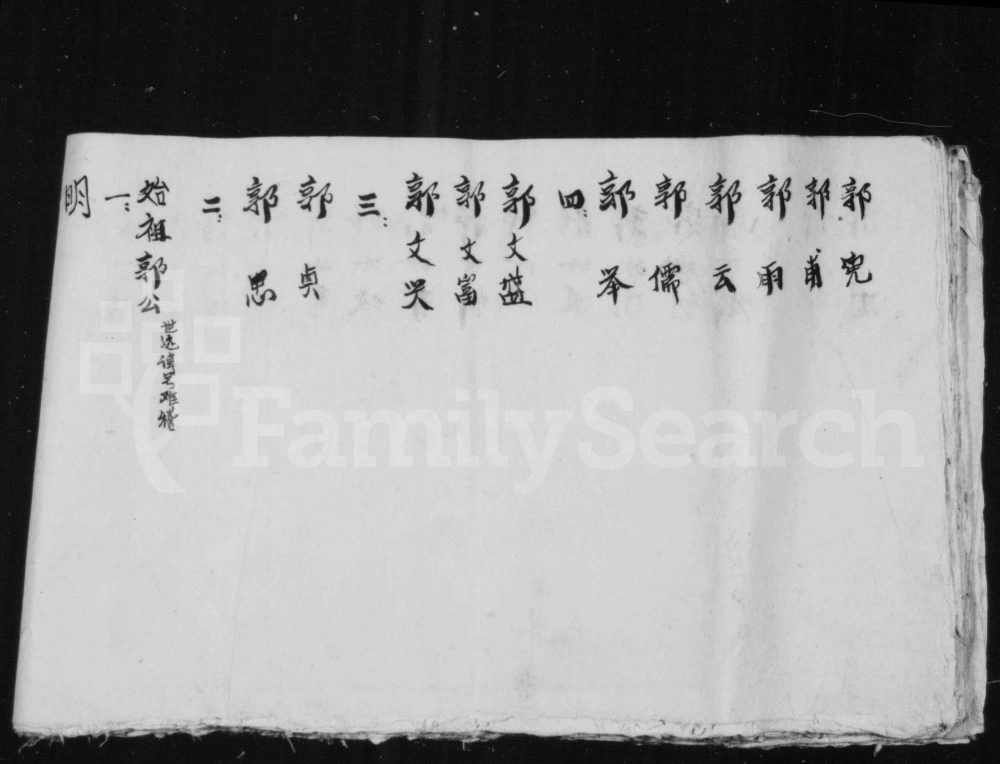 明
一:
始祖郭公
世远讳号难稽
二:
郭思
郭贞
三:
郭文
郭文富
郭文盛
四:
郭举
郭儒
郭云
郭雨
郭甫
郭宪
FamilySearch